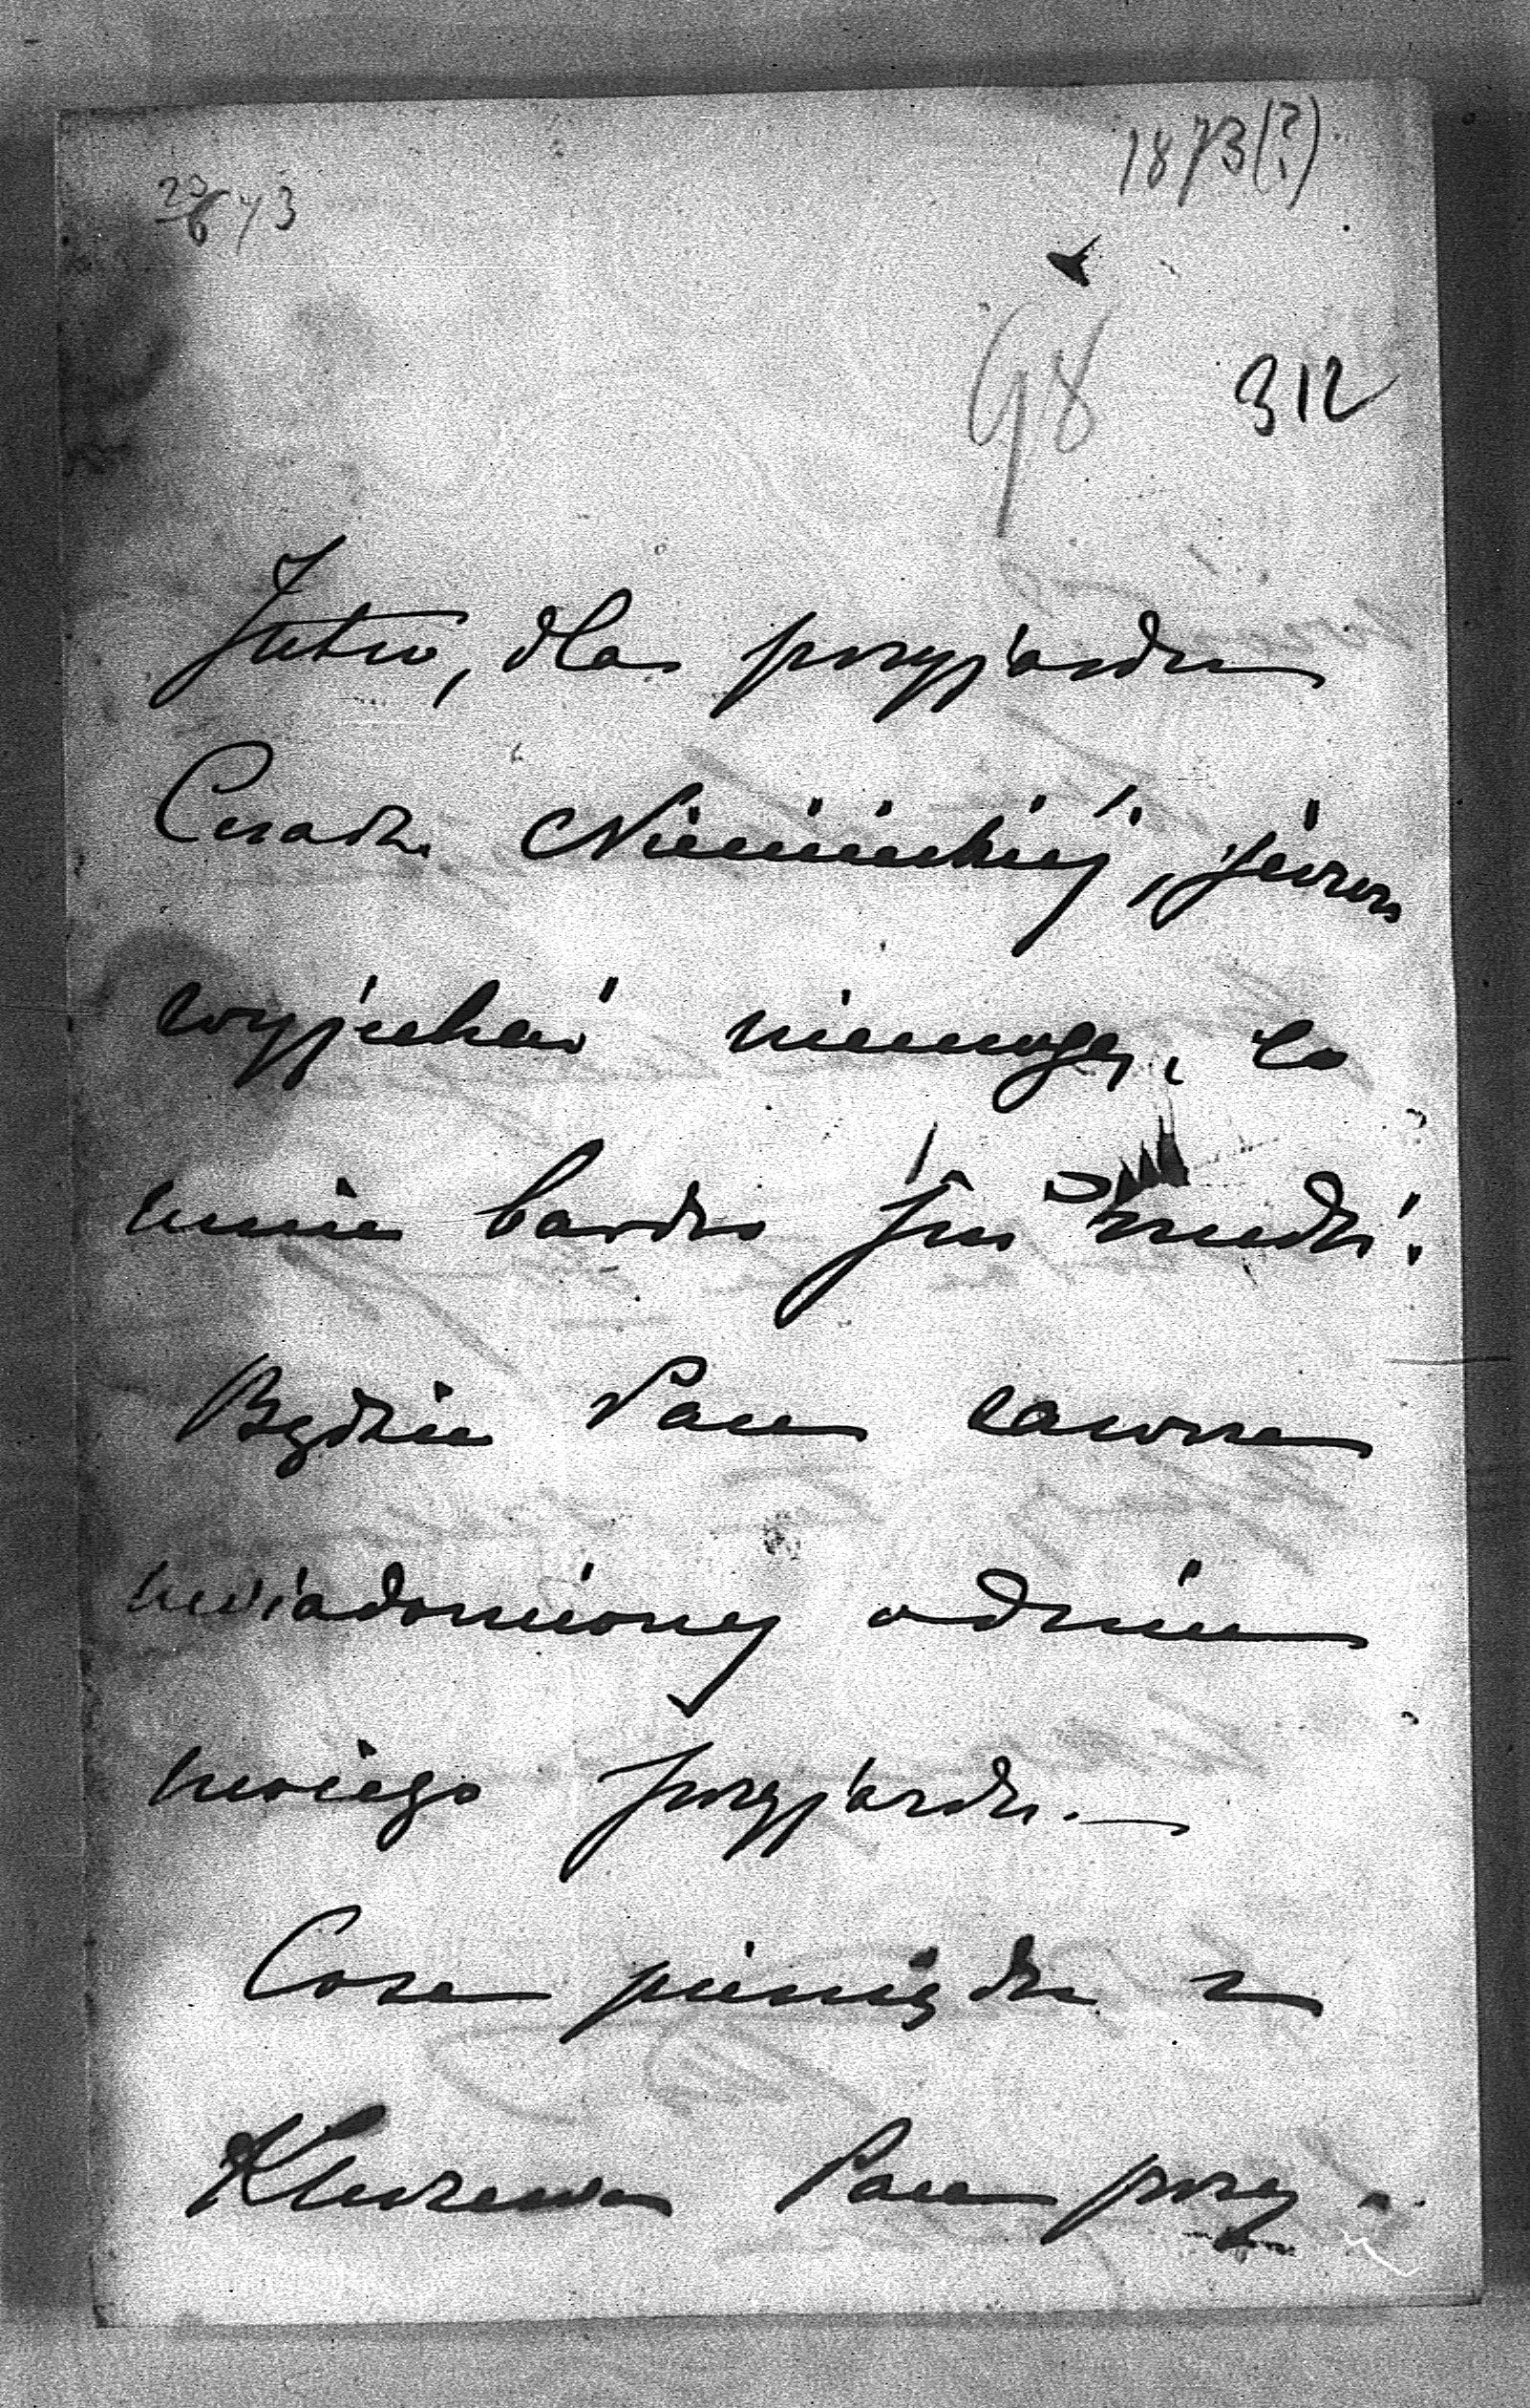 23/6 73
1873(?)
98 312
Jutro, dla przyjazdu
Cesarz. Niemieckiéj, jeszcze
wyjechać niemogę, co
mnie bardzo już nudzi.
Będzie Pan zawsze
uwiadomiony o dniu
mojego przyjazdu.—
Coże pieniędzy z
Kluczewa Pan przy-